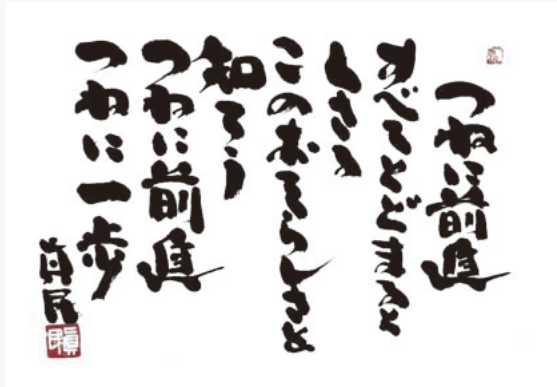 つねに前進
すべてとどまると
くさる
このおそろしさを
知ろう
つねに前進
つねに一歩
真民